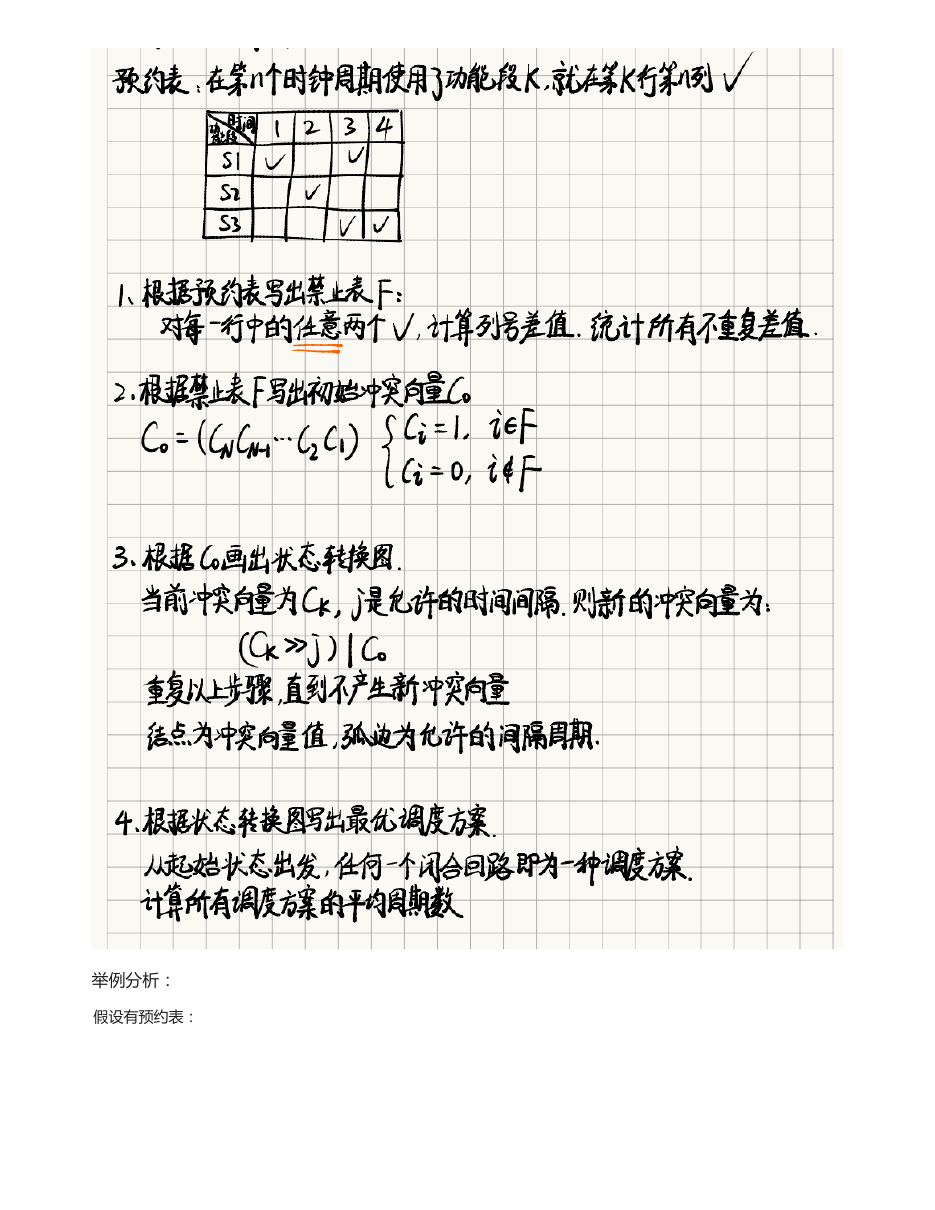 预约表:在第n个时钟周期使用了功能段K,就在第K行第n列 ✓
时间 1 2 3 4
S1 ✓ ✓
S2 ✓
S3 ✓ ✓
1、根据预约表写出禁止表F:
对每一行中的任意两个✓,计算列号差值.统计所有不重复差值.
2、根据禁止表F写出初始冲突向量C₀
C₀=(C_N C_{N-1}…C₂C₁) { Cᵢ=1, i∈F
Cᵢ=0, i∉F
3、根据C₀画出状态转换图.
当前冲突向量为C_K,j是允许的时间间隔.则新的冲突向量为:
(C_K≫j)|C₀
重复以上步骤,直到不产生新冲突向量
结点为冲突向量值,弧边为允许的间隔周期.
4、根据状态转换图写出最优调度方案.
从起始状态出发,任何一个闭合回路即为一种调度方案.
计算所有调度方案的平均周期数
举例分析:
假设有预约表: